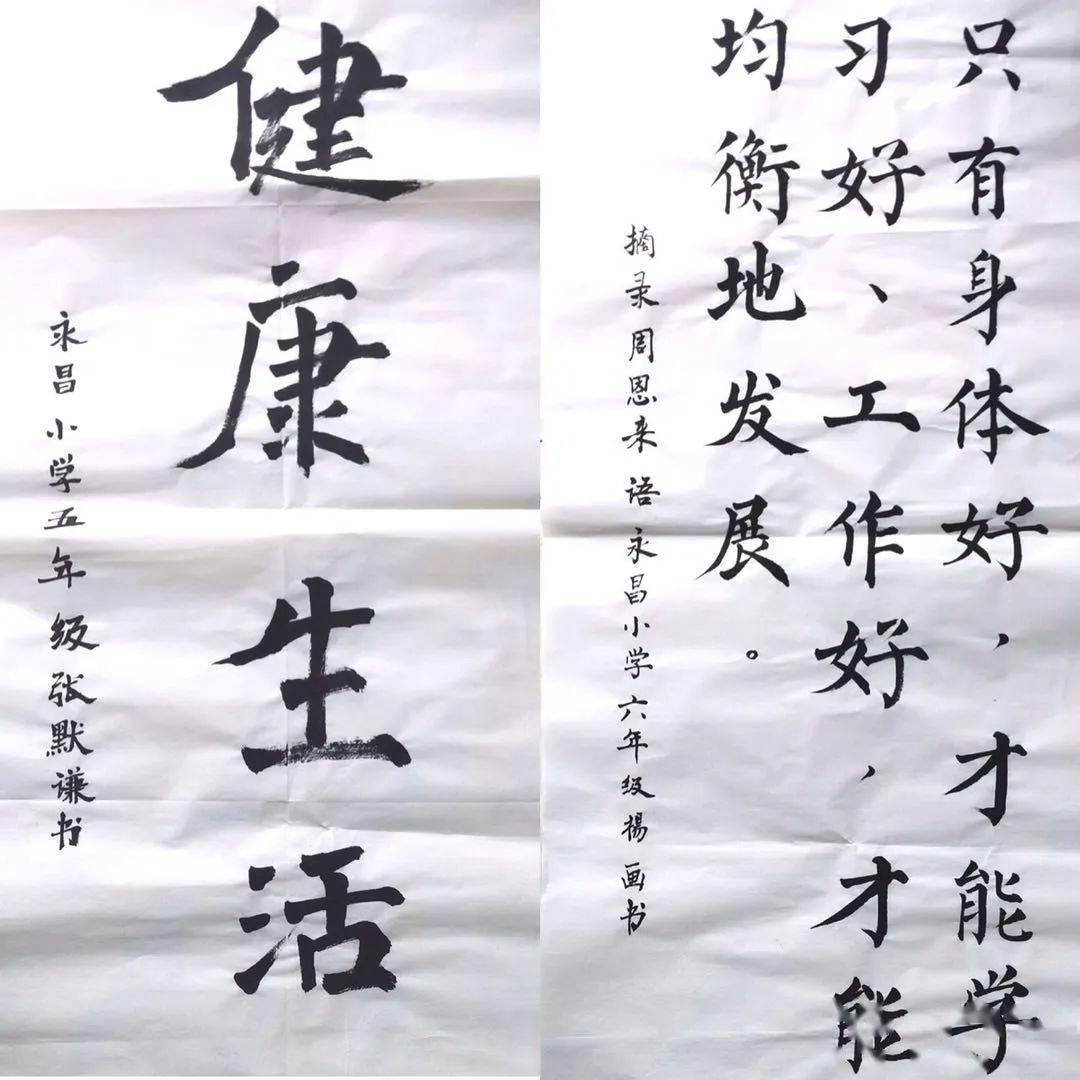 健康生活
永昌小学五年级张默谦书
只有身体好，才能学
习好、工作好，才能
均衡地发展。
摘录周恩来语永昌小学六年级杨画书